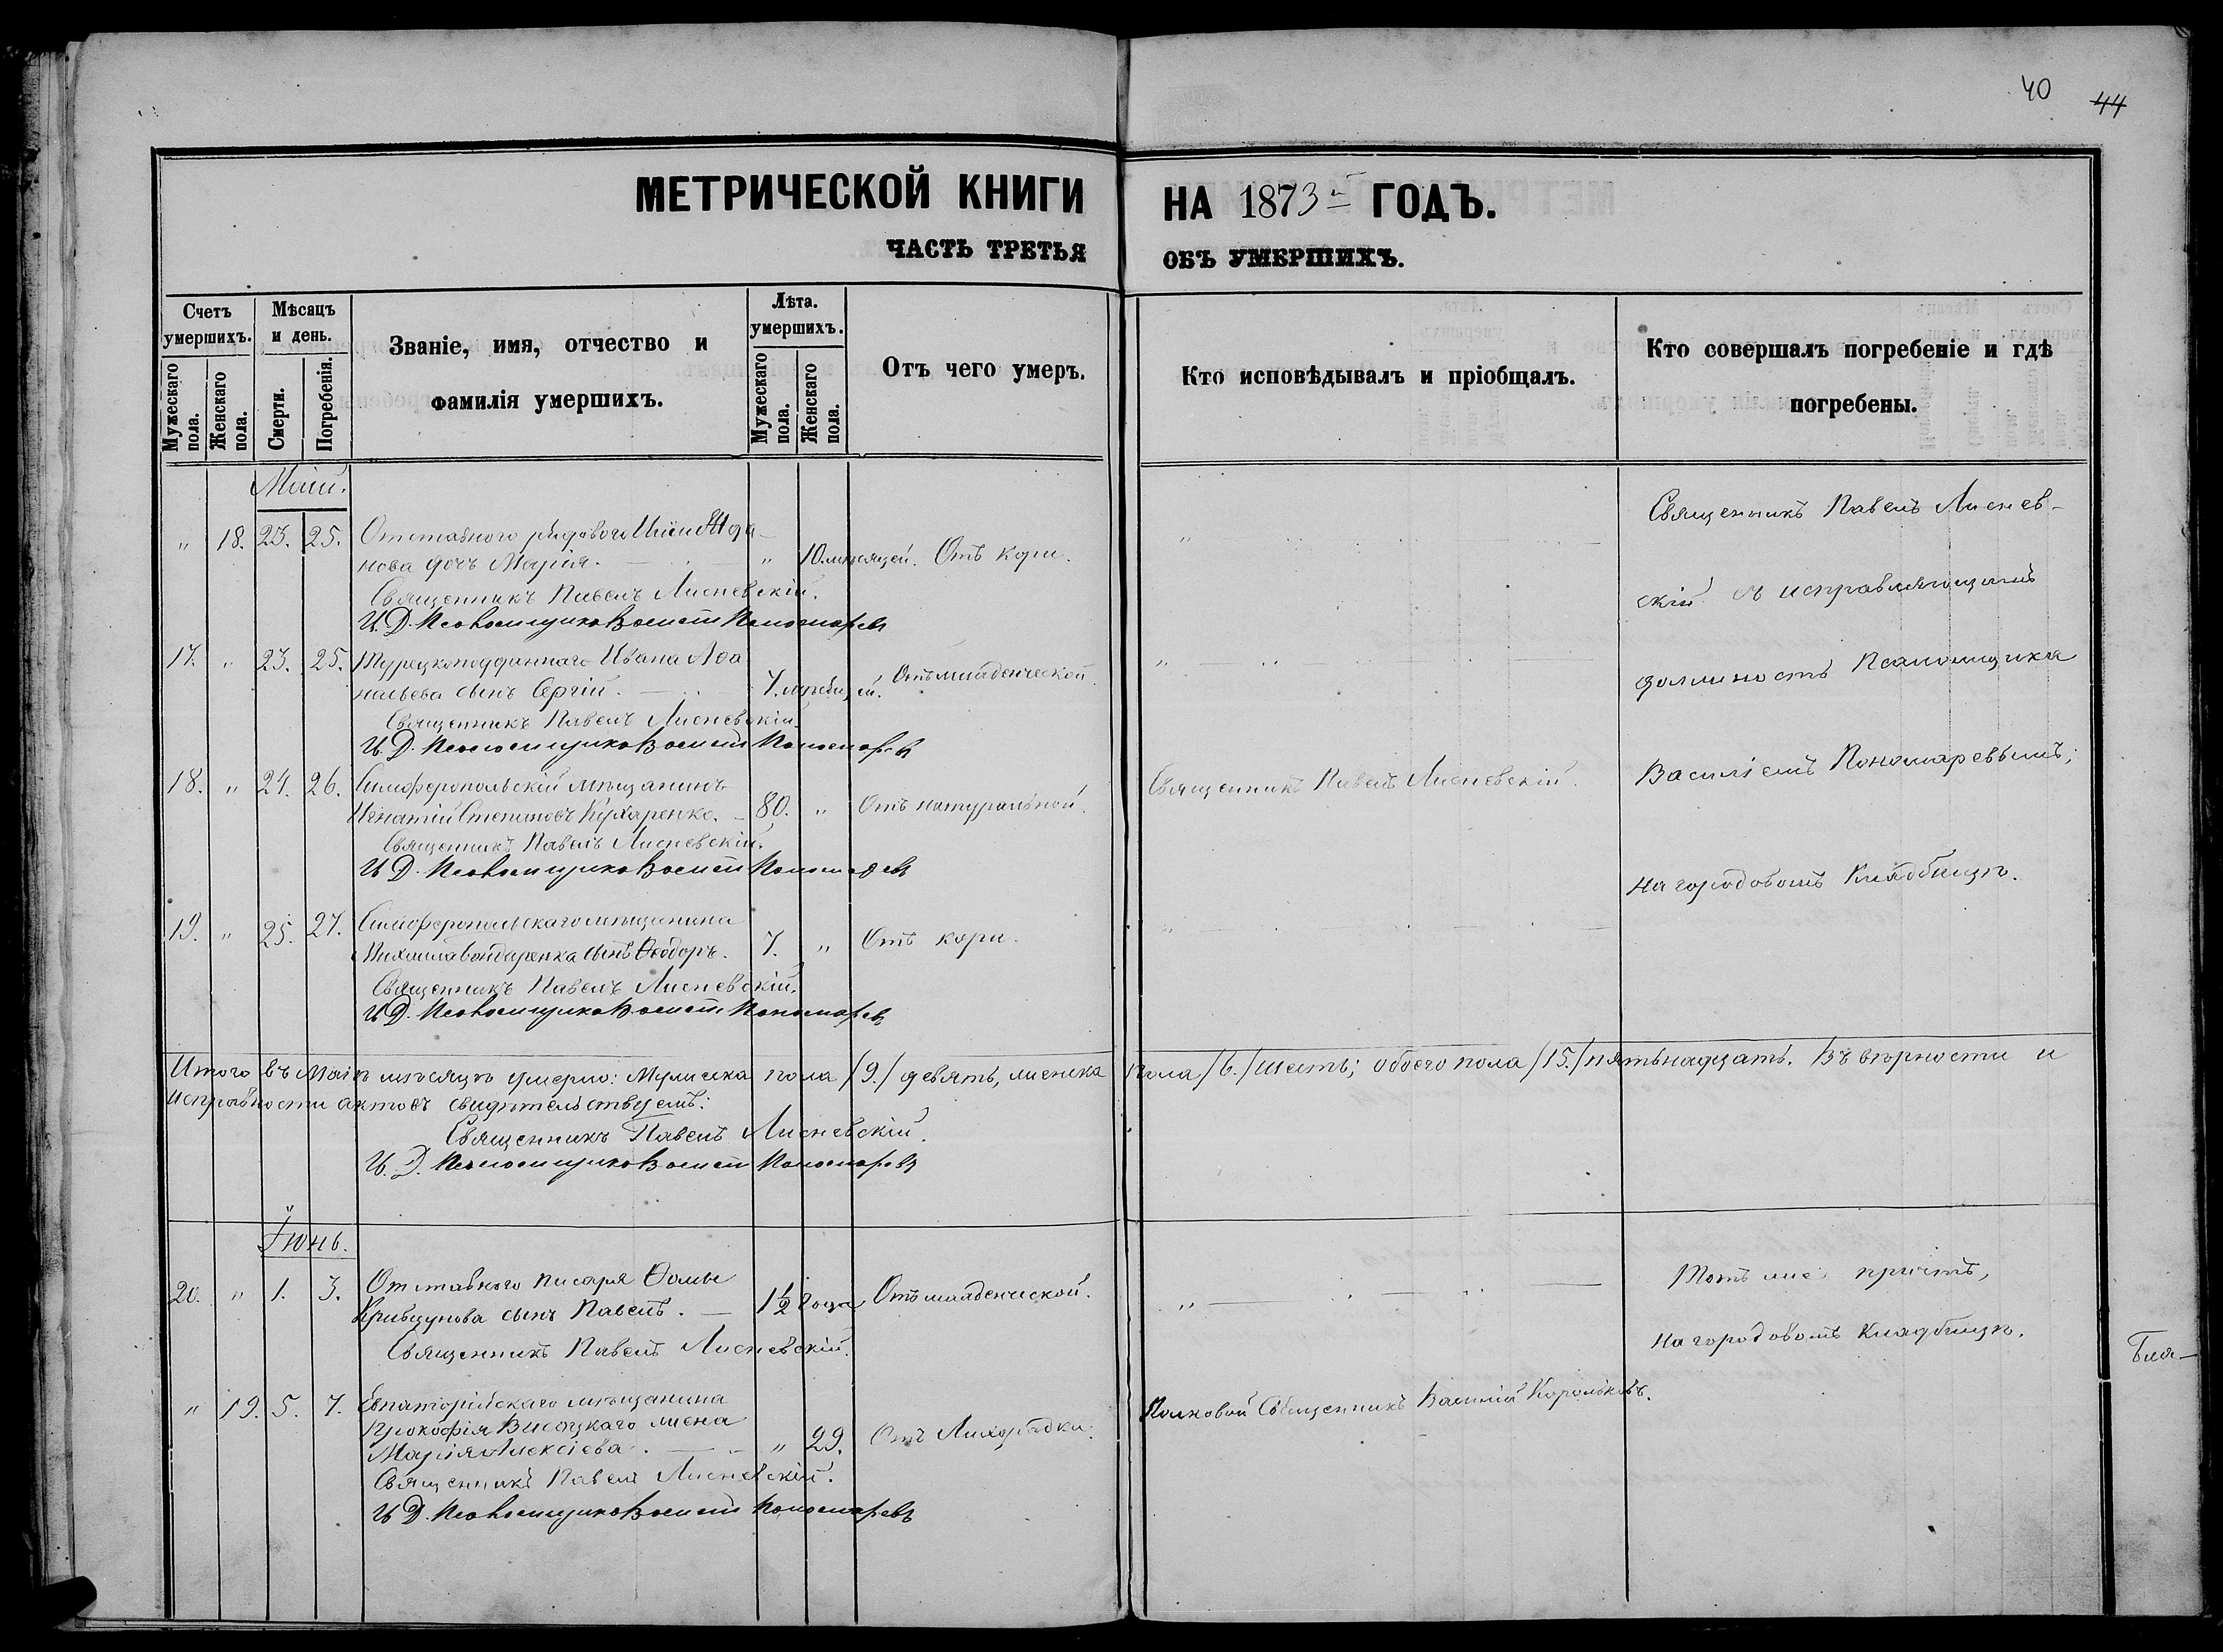 40 44
МЕТРИЧЕСКОЙ КНИГИ НА 1873й ГОДЪ.
ЧАСТЬ ТРЕТЬЯ ОБЪ УМЕРШИХЪ.
Счетъ умершихъ.
Мужескаго пола.
Женскаго пола.
Мѣсяцъ и день.
Смерти.
Погребенія.
Званіе, имя, отчество и
фамилія умершихъ.
Лѣта. умершихъ.
Мужескаго пола.
Женскаго пола.
Отъ чего умеръ.
Кто исповѣдывалъ и пріобщалъ.
Кто совершалъ погребеніе и гдѣ
погребены.
Маій.
" 18. 23. 25. Отставного рядового
нова дочь Марія. " 10. мѣсяцей. Отъ кори. "
Священникъ Павелъ Лисневскій.
И. Д. Псаломщика Василій Пономаревъ
Священникъ Павелъ Лиснев-
скій съ исправляющимъ
должность Псаломщика
Василіемъ Пономаревымъ;
на городовомъ кладбищѣ.
17. " 23. 25. Турецкоподданнаго Ивана Аѳа
насьева сынъ Сергій. 7. мѣсяцей. Отъ младенческой. "
Священникъ Павелъ Лисневскій.
И. Д. Псаломщика Василій Пономаревъ
18. " 24. 26. Симферопольскій мѣщанинъ
Игнатій Степановъ Кухаренко. 80. " Отъ натуральной. Священникъ Павелъ Лисневскій.
Священникъ Павелъ Лисневскій.
И. Д. Псаломщика Василій Пономаревъ
19. " 25. 27. Симферопольскаго мѣщанина
Михаила Бондаренка сынъ Ѳеодоръ. 7. " Отъ кори. "
Священникъ Павелъ Лисневскій.
И. Д. Псаломщика Василій Пономаревъ
Итого въ Маіѣ мѣсяцѣ умерло: Мужеска пола /9./ девять, женска пола /6./ шесть; обоего пола /15./ пятьнадцать. Въ вѣрности и
исправности актовъ свидѣтельствуемъ:
Священникъ Павелъ Лисневскій.
И. Д. Псаломщика Василій Пономаревъ
Іюнь.
20. " 1. 3. Отставного писаря Ѳомы
Кривцунова сынъ Павелъ. 1½ года Отъ младенческой. "
Священникъ Павелъ Лисневскій.
Тотъ же причтъ,
на городовомъ кладбищѣ.
" 19. 5. 7. Евпаторійскаго мѣщанина
Прокофія Висоцкаго жена
Марія Алексіева. " 29. Отъ Лихорадки. Полковой Священникъ Василій Корольковъ.
Священникъ Павелъ Лисневскій.
И. Д. Псаломщика Василій Пономаревъ